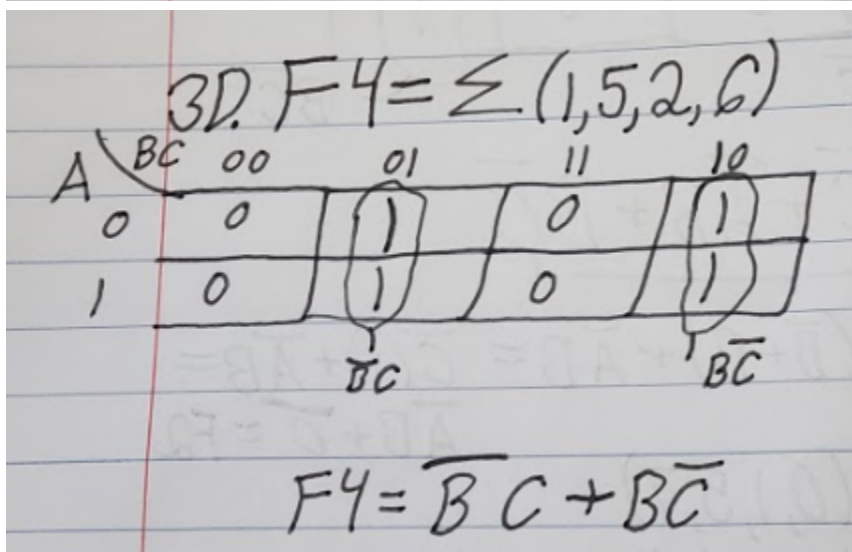 3D. F4 = Σ (1,5,2,6)
A \ BC 00 01 11 10
0 0 1 0 1
1 0 1 0 1
B̅C BC̅
F4 = B̅ C + BC̅